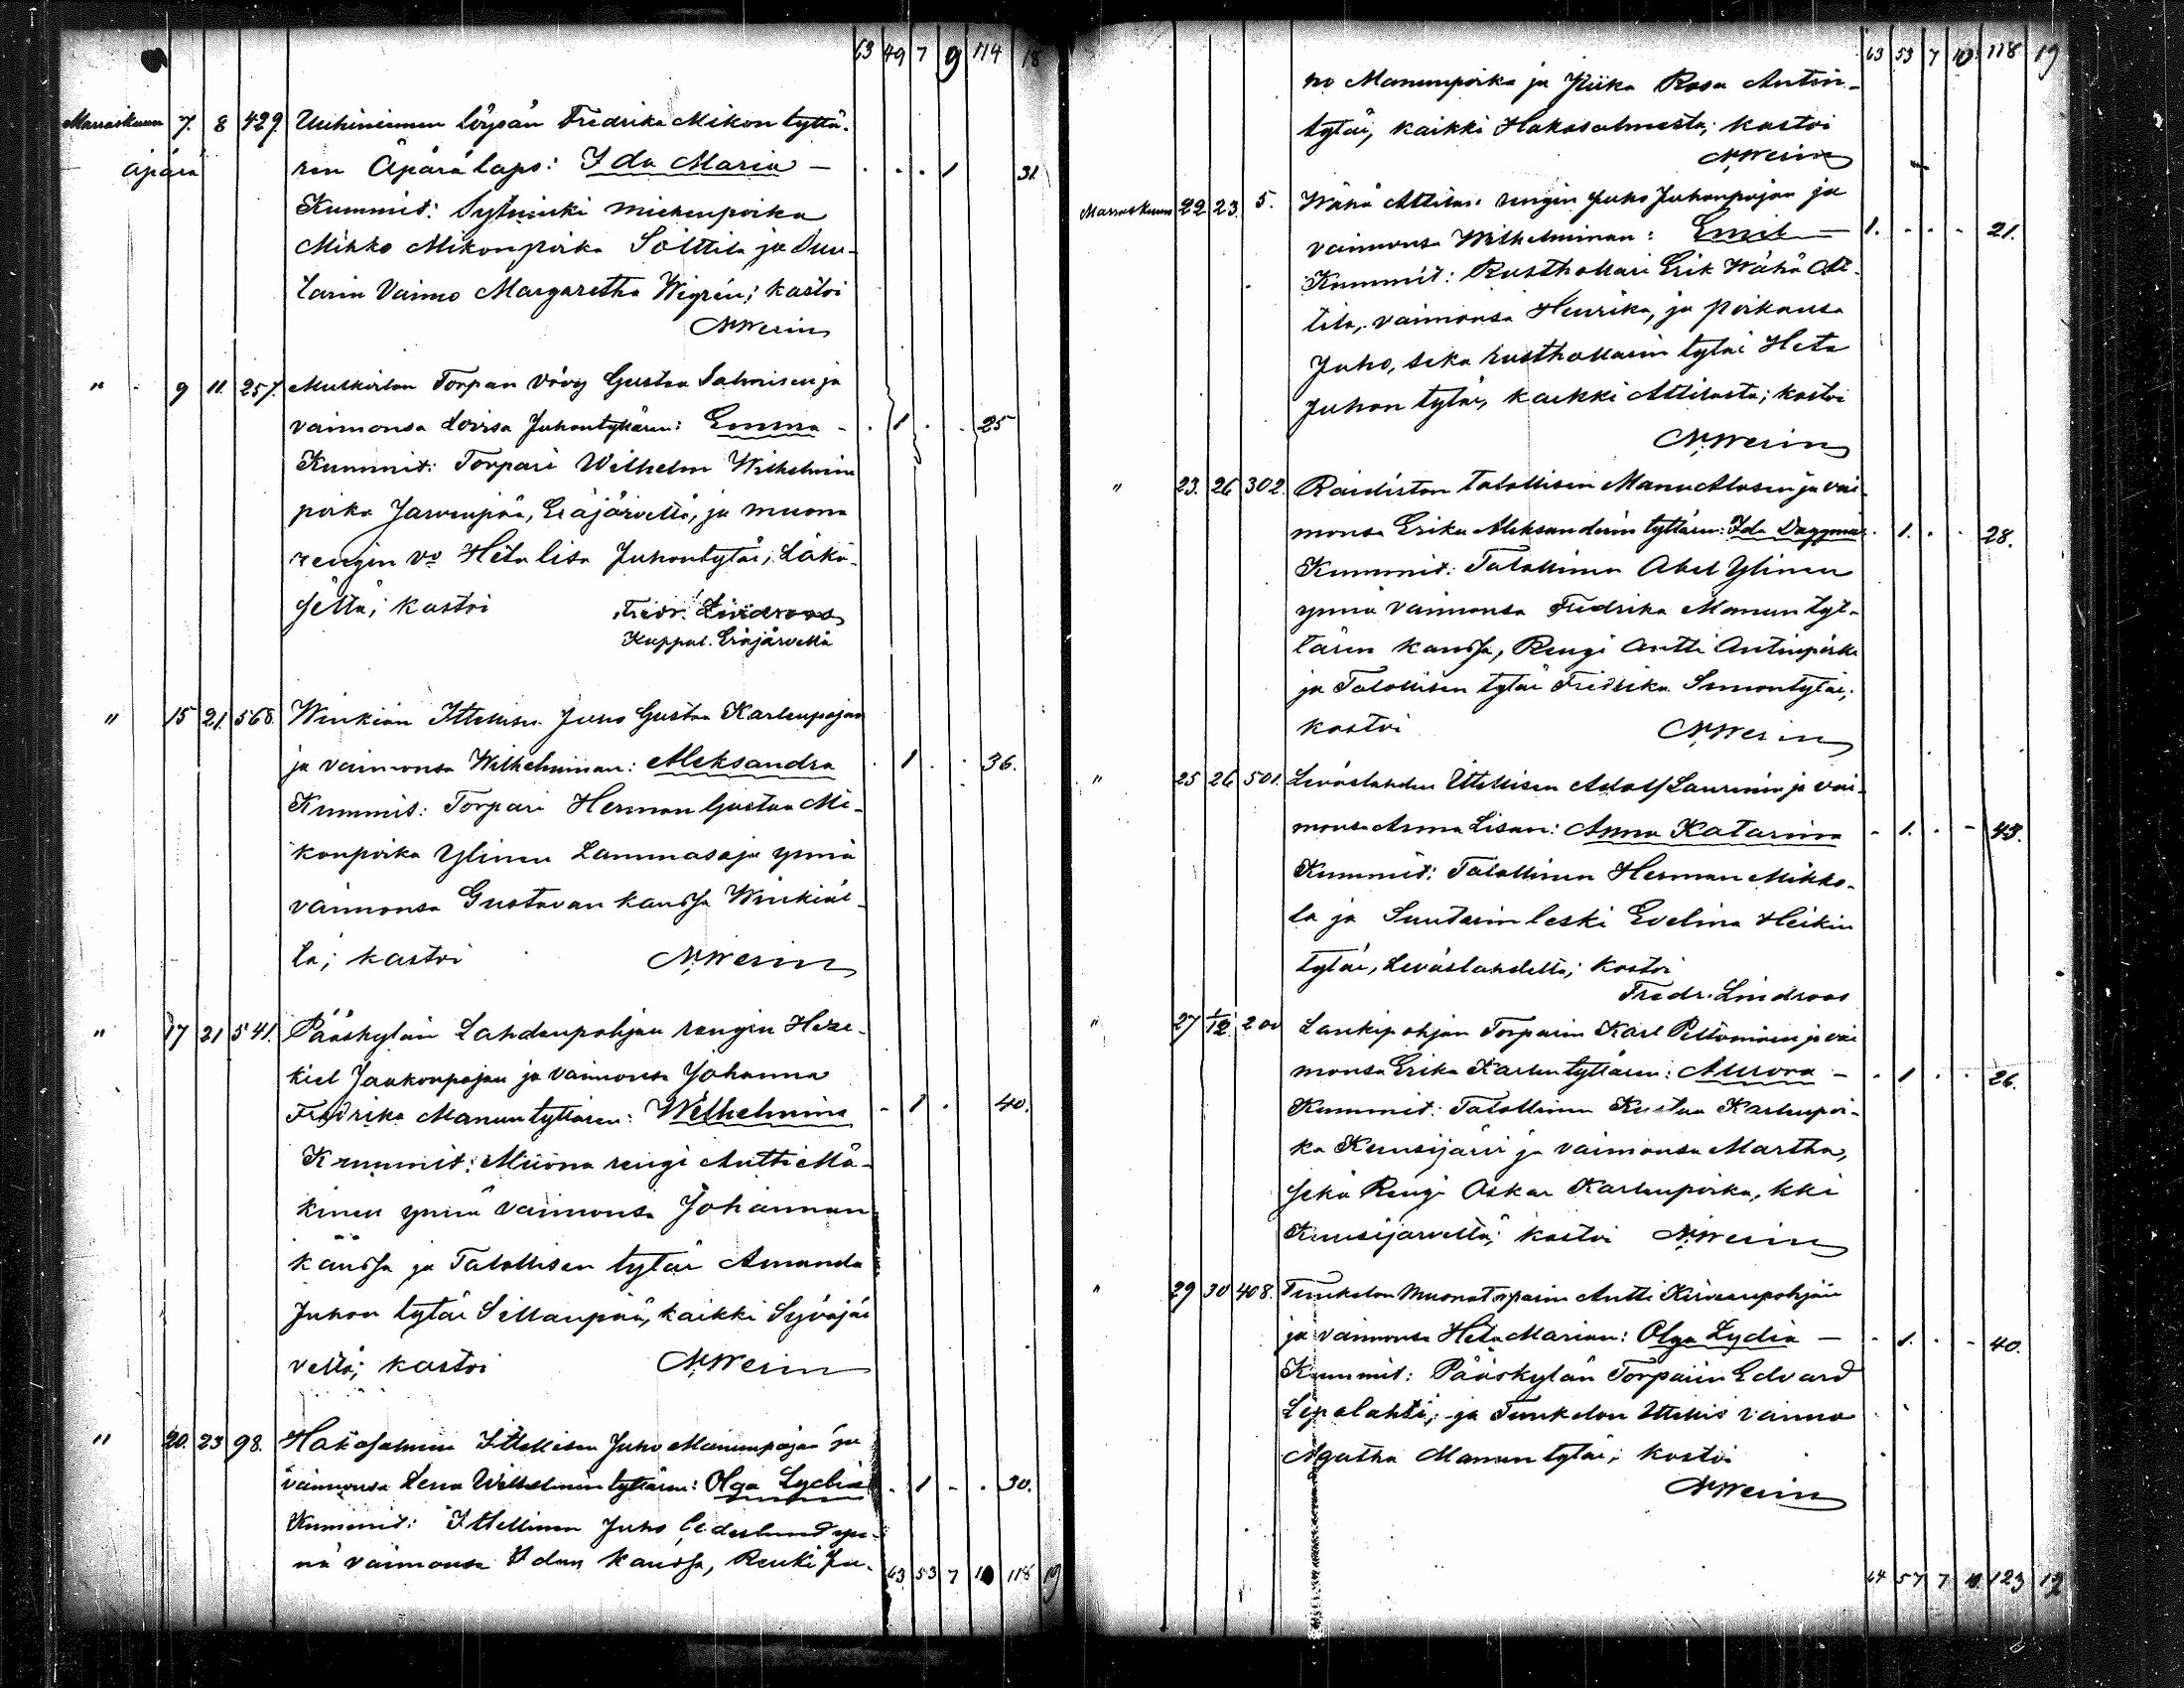 63 49 7 9 114 18
Marraskuun 7. 8 429. Uuhiniemen Fredrika Mikon tyttä-
äpärä ren Äpärä laps: Ida Maria — . . . 1 31.
Kummit: Sytniniki miehenpoika
Mikko Mikonpoika Solttila ja Suu-
tarin Vaimo Margaretha Wigrén; kastoi
" 9 11. 257. Torpan Vävy Gustaa Salmisen ja
vaimonsa Lovisa Juhontyttären: Emma - . 1 . . 25
Kummit: Torpari Wilhelm Wilhelmin
poika Jarvenpää, Eräjärveltä, ja muona
rengin vo Heta Lisa Juhontytär, Läkä-
seltä; kastoi Fredr. Lindroos
Kappal. Eräjärvellä
" 15 21. 568. Winkiän Ittellisen Juho Gustaa Karlenpojan
ja vaimonsa Wilhelminan: Aleksandra . 1 . . 36.
Kummit: Torpari Herman Gustaa Mi-
konpoika Ylinen Lammasoja ynnä
vaimonsa Gustavan kanssa Winkiäl-
tä; kastoi
" 17 21 541. Pääskylän Lahdenpohjan rengin Heze-
kiel Jaakonpojan ja vaimonsa Johanna
Fredrika Manuntyttären: Wilhelmina - 1 . 40.
Kummit: Muona rengi Antti Mä-
kinen ynnä vaimonsa Johannan
kanssa ja Talollisen tytär Amanda
Juhon tytär Sillanpää, kaikki Syväjär
veltä; kastoi
" 20. 23 98. Hakosalmen Ittellisen Juho Manunpojan ja
vaimonsa Lena Wilhelmin tyttären: Olga Lydia . 1 - . 30.
Kummit: Ittellinen Juho Cederlund yn-
nä vaimonsa Idan kanssa, Renki Ju-
63 53 7 10 118 19
63 53 7 10 118 19
ho Manunpoika ja Piika Rosa Antin-
tytär, kaikki Hakosalmesta; kastoi
Marraskuun 22 23. 5. Wähä Attilan rengin Juho Juhonpojan ja
vaimonsa Wilhelminan: Emil — 1. . . - 21.
Kummit: Rusthollari Erik Wähä At-
tila, vaimonsa Henrika, ja poikansa
Juho, sekä rusthollarin tytär Heta
Juhon tytär, kaikki Attilasta; kastoi
" 23. 26 302. Raidiston talollisen Manu Alosen ja vai-
monsa Erika Aleksanderin tyttären: Ida Dagmar . 1. . . 28.
Kummit: Talollinen Abel Ylinen
ynnä vaimonsa Fredrika Manun tyt-
tären kanssa, Rengi Antti Antinpoika
ja Talollisen tytär Fredrika Simontytär;
kastoi
" 25 26 501. Leväslahden Ittellisen Adolf Laurinin ja vai-
monsa Anna Lisan: Anna Katarina - 1. . - 43.
Kummit: Talollinen Herman Mikko-
la ja Suutarin leski Evelina Heikin
tytär, Leväslahdelta; kastoi
Fredr. Lindroos
" 27 1/12 200 Länkipohjan Torparin Karl Peltomäen ja vai
monsa Erika Karlen tyttären: Aurora - . 1 . . 26.
Kummit: Talollinen Kustaa Karlenpoi-
ka Kuusijärvi ja vaimonsa Martha,
sekä Rengi Oskar Karlenpoika, kki
Kuusijärveltä; kastoi
" 29 30 408. Tunkelon Muonatorparin Antti Kirveenpohjan
ja vaimonsa Heta Marian: Olga Lydia — - 1. . - 40.
Kummit: Pääskylän Torparin Edvard
Lepalahti, ja Tunkelon Ittellis vaimo
Agatha Manun tytär; kastoi
64 57 7 10 123 19